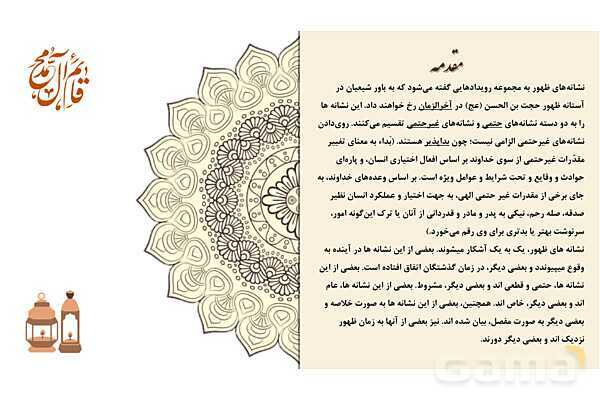 قائم آل محمد
مقدمه
نشانه‌های ظهور به مجموعه رویدادهایی گفته می‌شود که به باور شیعیان در
آستانه ظهور حجت بن الحسن (عج) در آخرالزمان رخ خواهند داد. این نشانه ها
را به دو دسته نشانه‌های حتمی و نشانه‌های غیرحتمی تقسیم می‌کنند. روی‌دادن
نشانه‌های غیرحتمی الزامی نیست؛ چون بداپذیر هستند. (بَداء به معنای تغییر
مقدّرات غیرحتمی از سوی خداوند بر اساس افعال اختیاری انسان، و پاره‌ای
حوادث و وقایع و تحت شرایط و عوامل ویژه است. بر اساس وعده‌های خداوند، به
جای برخی از مقدرات غیر حتمی الهی، به جهت اختیار و عملکرد انسان نظیر
صدقه، صله رحم، نیکی به پدر و مادر و قدردانی از آنان یا ترک این‌گونه امور،
سرنوشت بهتر یا بدتری برای وی رقم می‌خورد.)
نشانه های ظهور، یک به یک آشکار میشوند. بعضی از این نشانه ها در آینده به
وقوع میپیوندد و بعضی دیگر، در زمان گذشتگان اتفاق افتاده است. بعضی از این
نشانه ها، حتمی و قطعی اند و بعضی دیگر، مشروط. بعضی از این نشانه ها، عام
اند و بعضی دیگر، خاص اند. همچنین، بعضی از این نشانه ها به صورت خلاصه و
بعضی دیگر به صورت مفصل، بیان شده اند. نیز بعضی از آنها به زمان ظهور
نزدیک اند و بعضی دیگر دورند.
Gama